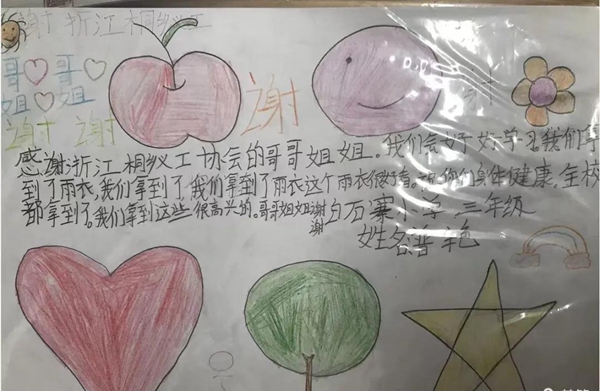 谢 浙江桐妙工
哥♡哥♡
姐♡姐
谢 谢
谢
谢
感谢浙江桐妙工协会的哥哥姐姐。我们会好好学习我们拿
到了雨衣,我们拿到了,我们拿到了雨衣这个雨衣很好看。祝你们身体健康。全校
都拿到了。我们拿到这些很高兴的。哥哥姐姐谢谢
白石寨小学 三年级
姓名普艳